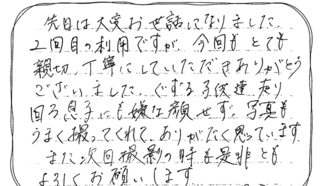 先日は大変お世話になりました。
2回目の利用ですが、今回もとても
親切、丁寧にしていただきありがとう
ございました。ぐずる子供達、走り
回る息子にも嫌な顔せず、写真も
うまく撮ってくれて、ありがたく思っています。
また次回撮影の時も是非とも
よろしくお願いします